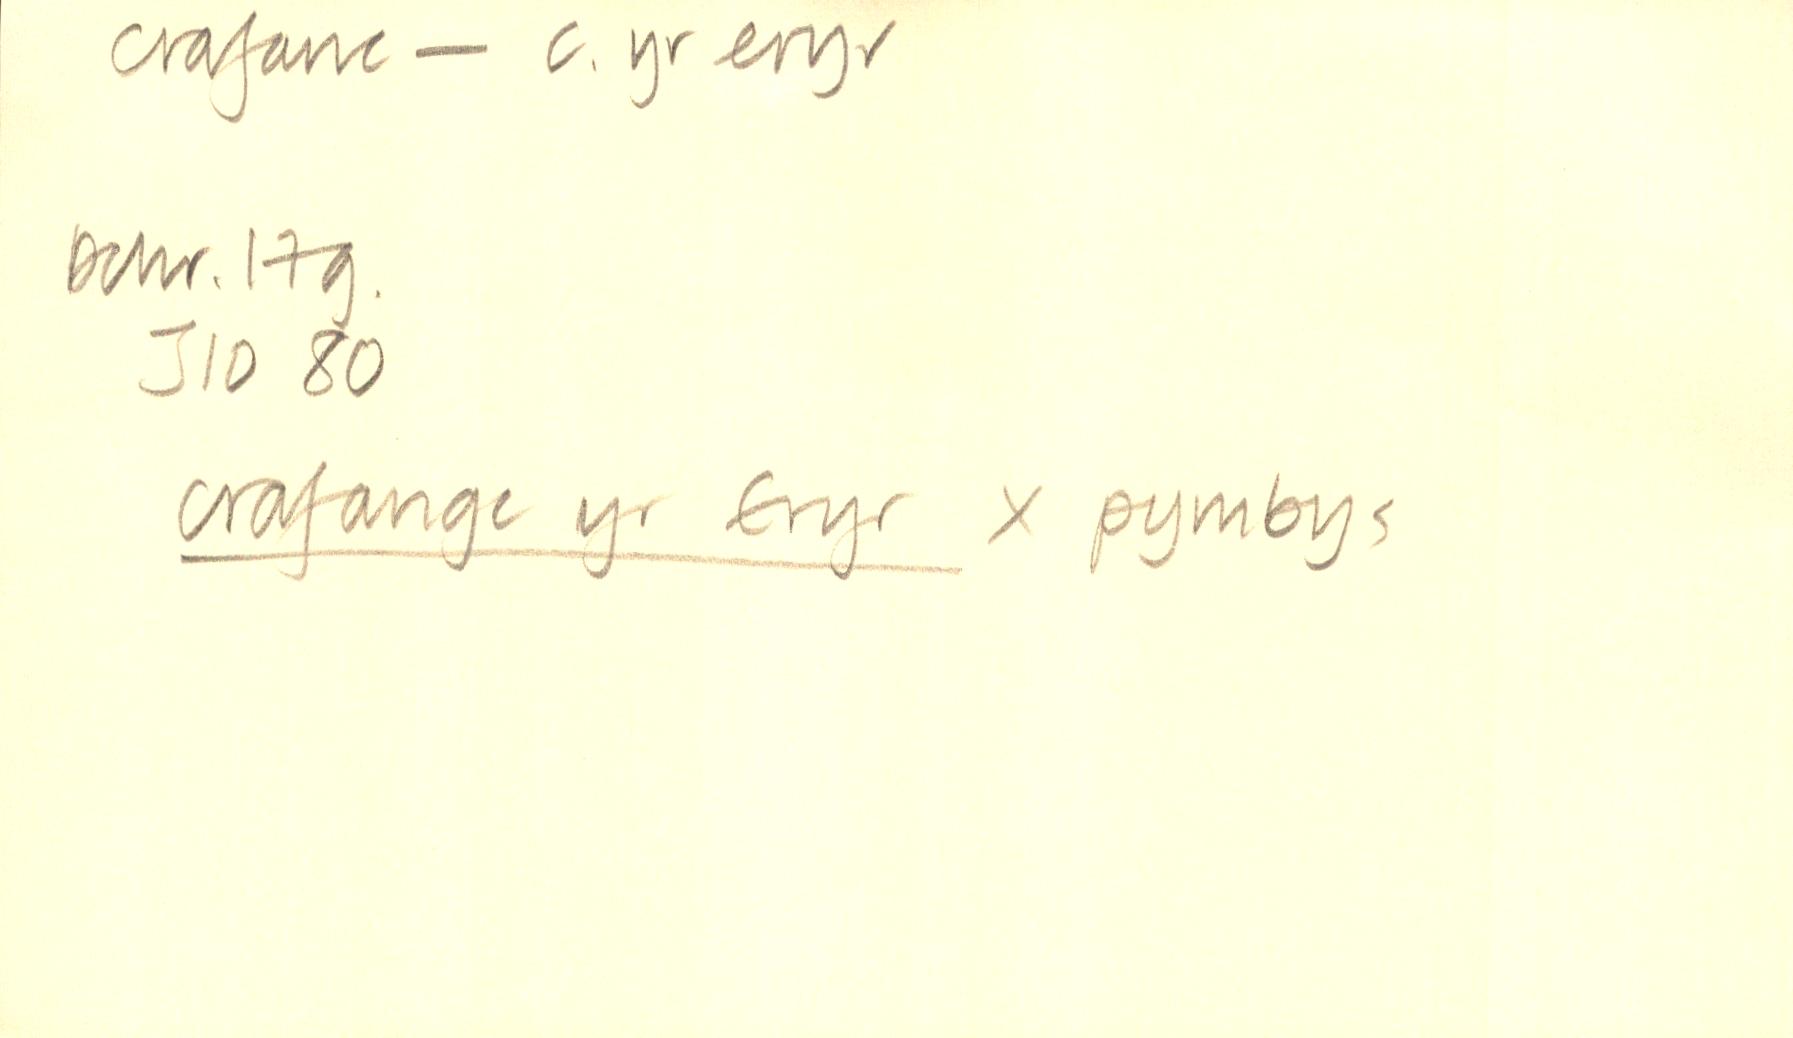 crafanc — c. yr eryr
Dchr. 17g.
J10 80
crafangc yr Eryr x pymbys